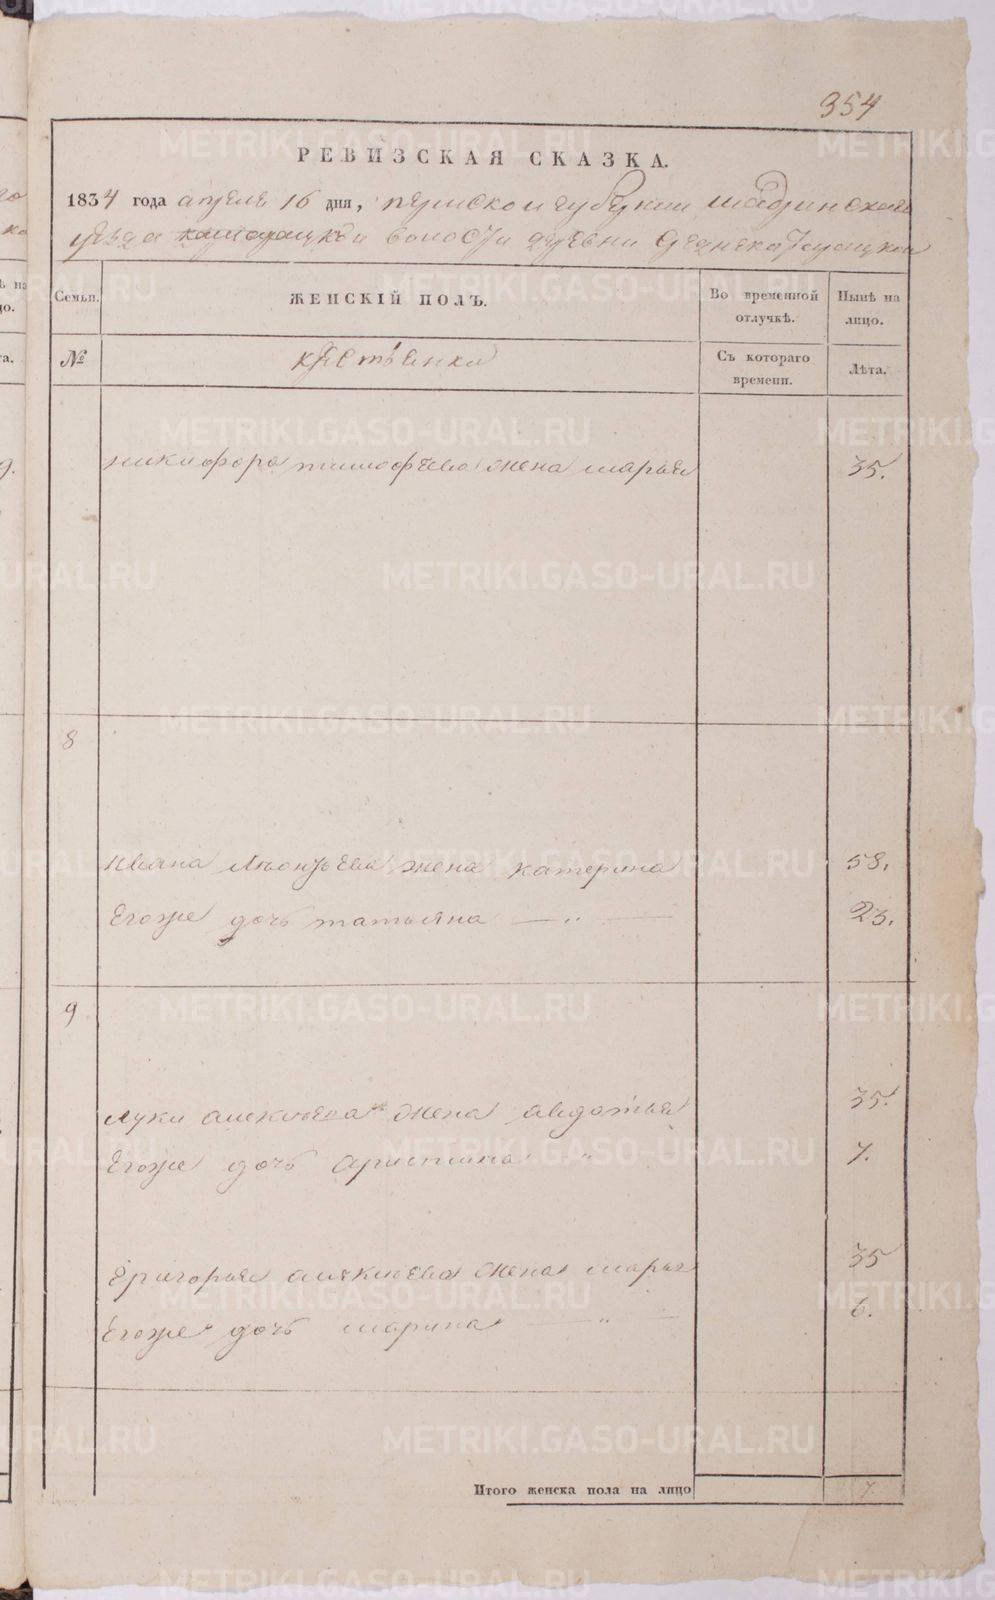 354
РЕВИЗСКАЯ СКАЗКА.
1834 года апреля 16 дня, пермской губернии шадринскаго
уезда волости деревни
Семьи. ЖЕНСКІЙ ПОЛЪ. Во временной отлучкѣ. Нынѣ на лицо.
№ крестьянки Съ котораго времени. Лѣта.
никифора тимофѣева жена марья 35.
8
ивана леонтьева жена катерина 58.
Егоже дочь татьяна — " — 23.
9
луки алексѣева жена авдотья 35.
Егоже дочь 7.
григорья алексѣева жена марья 35
Егоже дочь марина — " — 6.
Итого женска пола на лицо 7.
METRIKI.GASO-URAL.RU